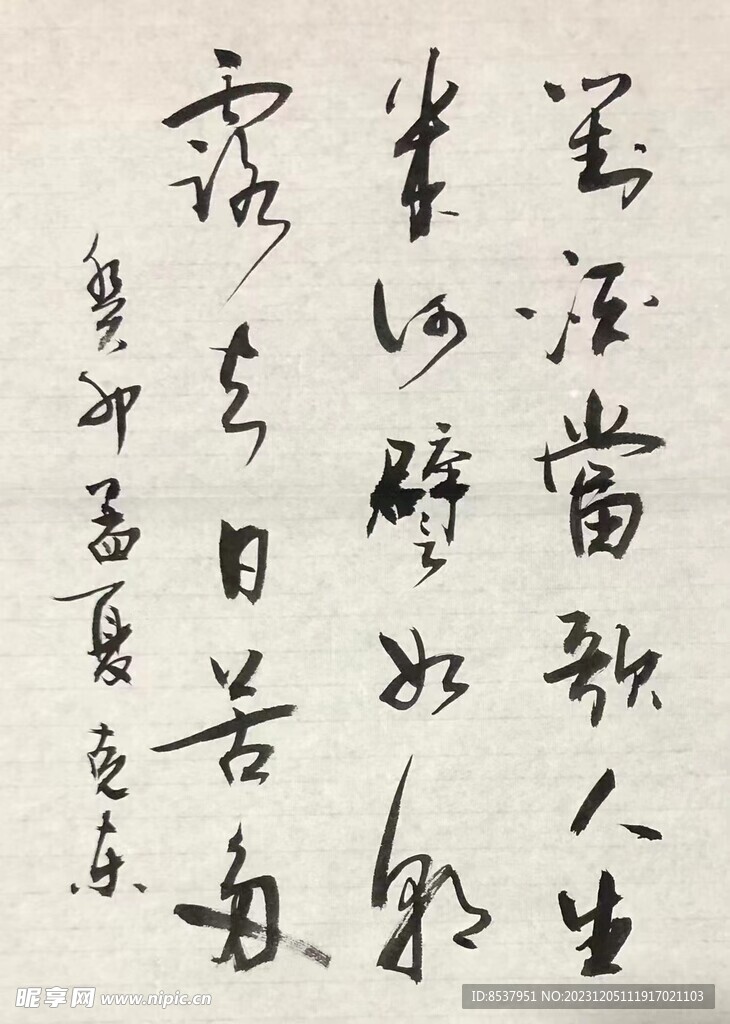 對酒當歌人生
幾何譬如朝
露去日苦多
癸卯孟夏克东
昵享网 www.nipic.cn
ID:8537951 NO:20231205111917021103